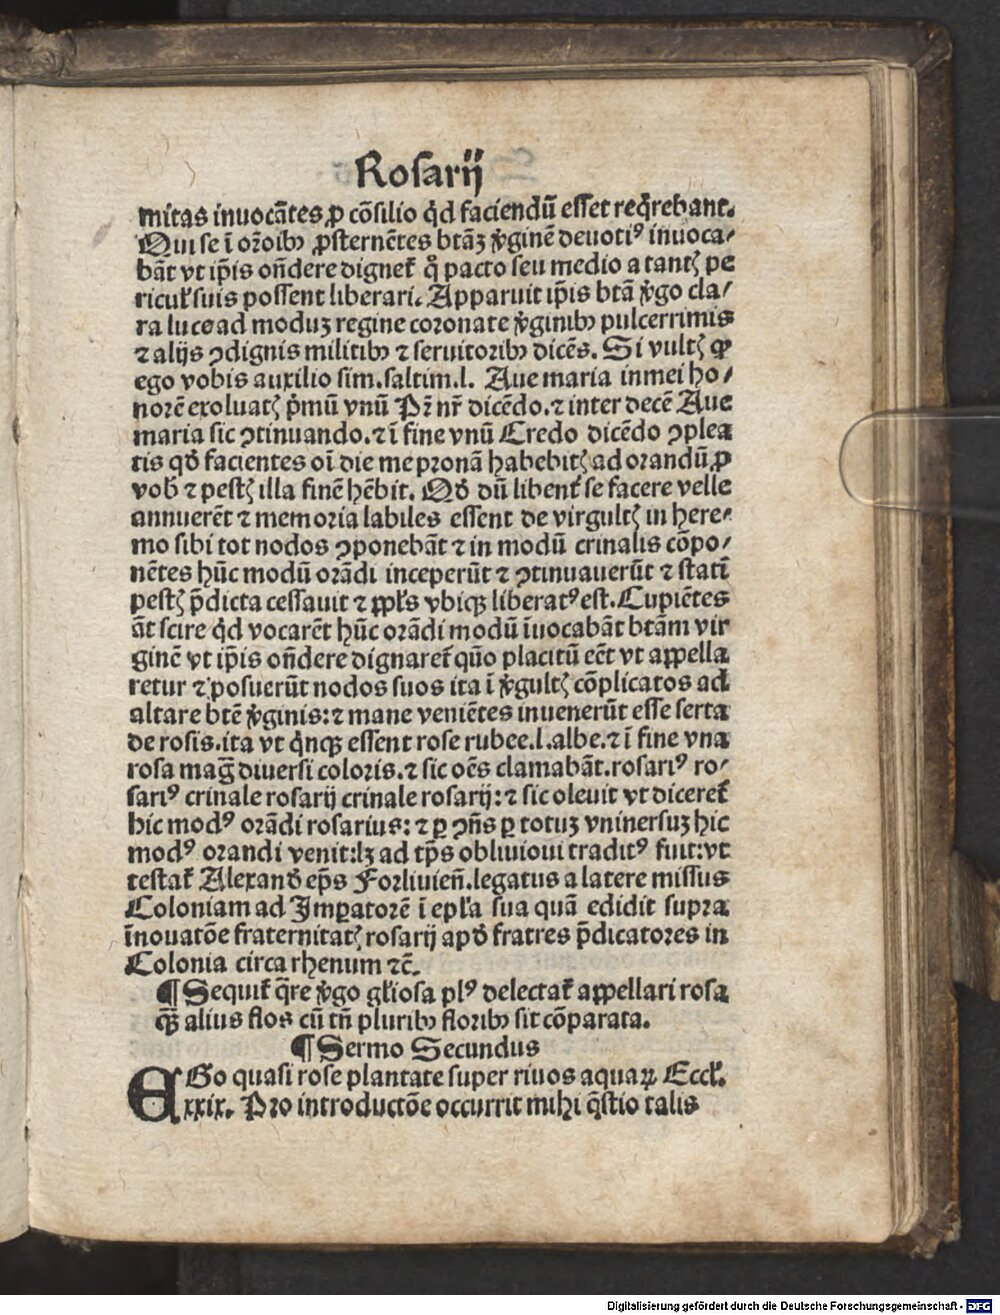 Rosarij
mitas inuocãtes ꝓ cõsilio qͥd faciendũ esset reqͥrebant.
Qui se ĩ orõibꝫ ꝓsternẽtes btãꝫ ꝟginẽ deuotiꝰ inuoca⸗
bãt vt ip̃is oñdere dignet᷑ qͦ pacto seu medio a tantꝭ pe
ricul᷑ suis possent liberari. Apparuit ip̃is btã ꝟgo cla⸗
ra luce ad moduꝫ regine coronate ꝟginibꝫ pulcerrimis
⁊ alijs ꝯdignis militibꝫ ⁊ seruitoribꝫ dicẽs. Si vultꝭ ꝙ
ego vobis auxilio sim. saltim .l. Aue maria in mei ho⸗
norẽ exoluatꝭ pͥmũ vnũ Pr̃ nr̃ dicẽdo. ⁊ inter decẽ Aue
maria sic ꝯtinuando. ⁊ ĩ fine vnũ Credo dicẽdo ꝯplea
tis qđ facientes oĩ die me pronã habebitꝭ ad orandũ ꝓ
vob̾ ⁊ pestꝭ illa finẽ hẽbit. Qđ dũ libent᷑ se facere velle
annuerẽt ⁊ memoria labiles essent de virgultꝭ in here⸗
mo sibi tot nodos ꝯponebãt ⁊ in modũ crinalis cõpo⸗
nẽtes hũc modũ orãdi inceperũt ⁊ ꝯtinuauerũt ⁊ statĩ
pestꝭ p̃dicta cessauit ⁊ ppl̃s vbiqꝫ liberatꝰ est. Cupiẽtes
ãt scire qͥd vocarẽt hũc orãdi modũ ĩuocabãt btãm vir
ginẽ vt ip̃is oñdere dignaret᷑ quõ placitũ eẽt vt appella
retur ⁊ posuerũt nodos suos ita ĩ ꝟgultꝭ cõplicatos ad
altare btẽ ꝟginis: ⁊ mane veniẽtes inuenerũt esse serta
de rosis. ita vt qͥnqꝫ essent rose rubee .l. albe. ⁊ ĩ fine vna
rosa mag̃ diuersi coloris. ⁊ sic oẽs clamabãt. rosariꝰ ro⸗
sariꝰ crinale rosarij crinale rosarij: ⁊ sic oleuit vt diceret᷑
hic modꝰ orãdi rosarius: ⁊ ꝑ ꝯñs ꝑ totuꝫ vninersuꝫ hic
modꝰ orandi venit: lꝫ ad tp̃s obliuioui traditꝰ fuit: vt
testat᷑ Alexanđ ep̃s Forliuień. legatus a latere missus
Coloniam ad Imꝑatorẽ ĩ epl̃a sua quã edidit supra
ĩnouatõe fraternitatꝭ rosarij apđ fratres p̃dicatores in
Colonia circa rhenum ⁊c̃.
¶ Sequit᷑ q̃re ꝟgo gl̃iosa plꝰ delectat᷑ appellari rosa
qͣꝫ alius flos cũ tñ pluribꝫ floribꝫ sit cõparata.
¶ Sermo Secundus
EGo quasi rose plantate super riuos aquaꝝ Eccl̃.
xxix. Pro introductõe occurrit mihi q̃stio talis
Digitalisierung gefördert durch die Deutsche Forschungsgemeinschaft - DFG